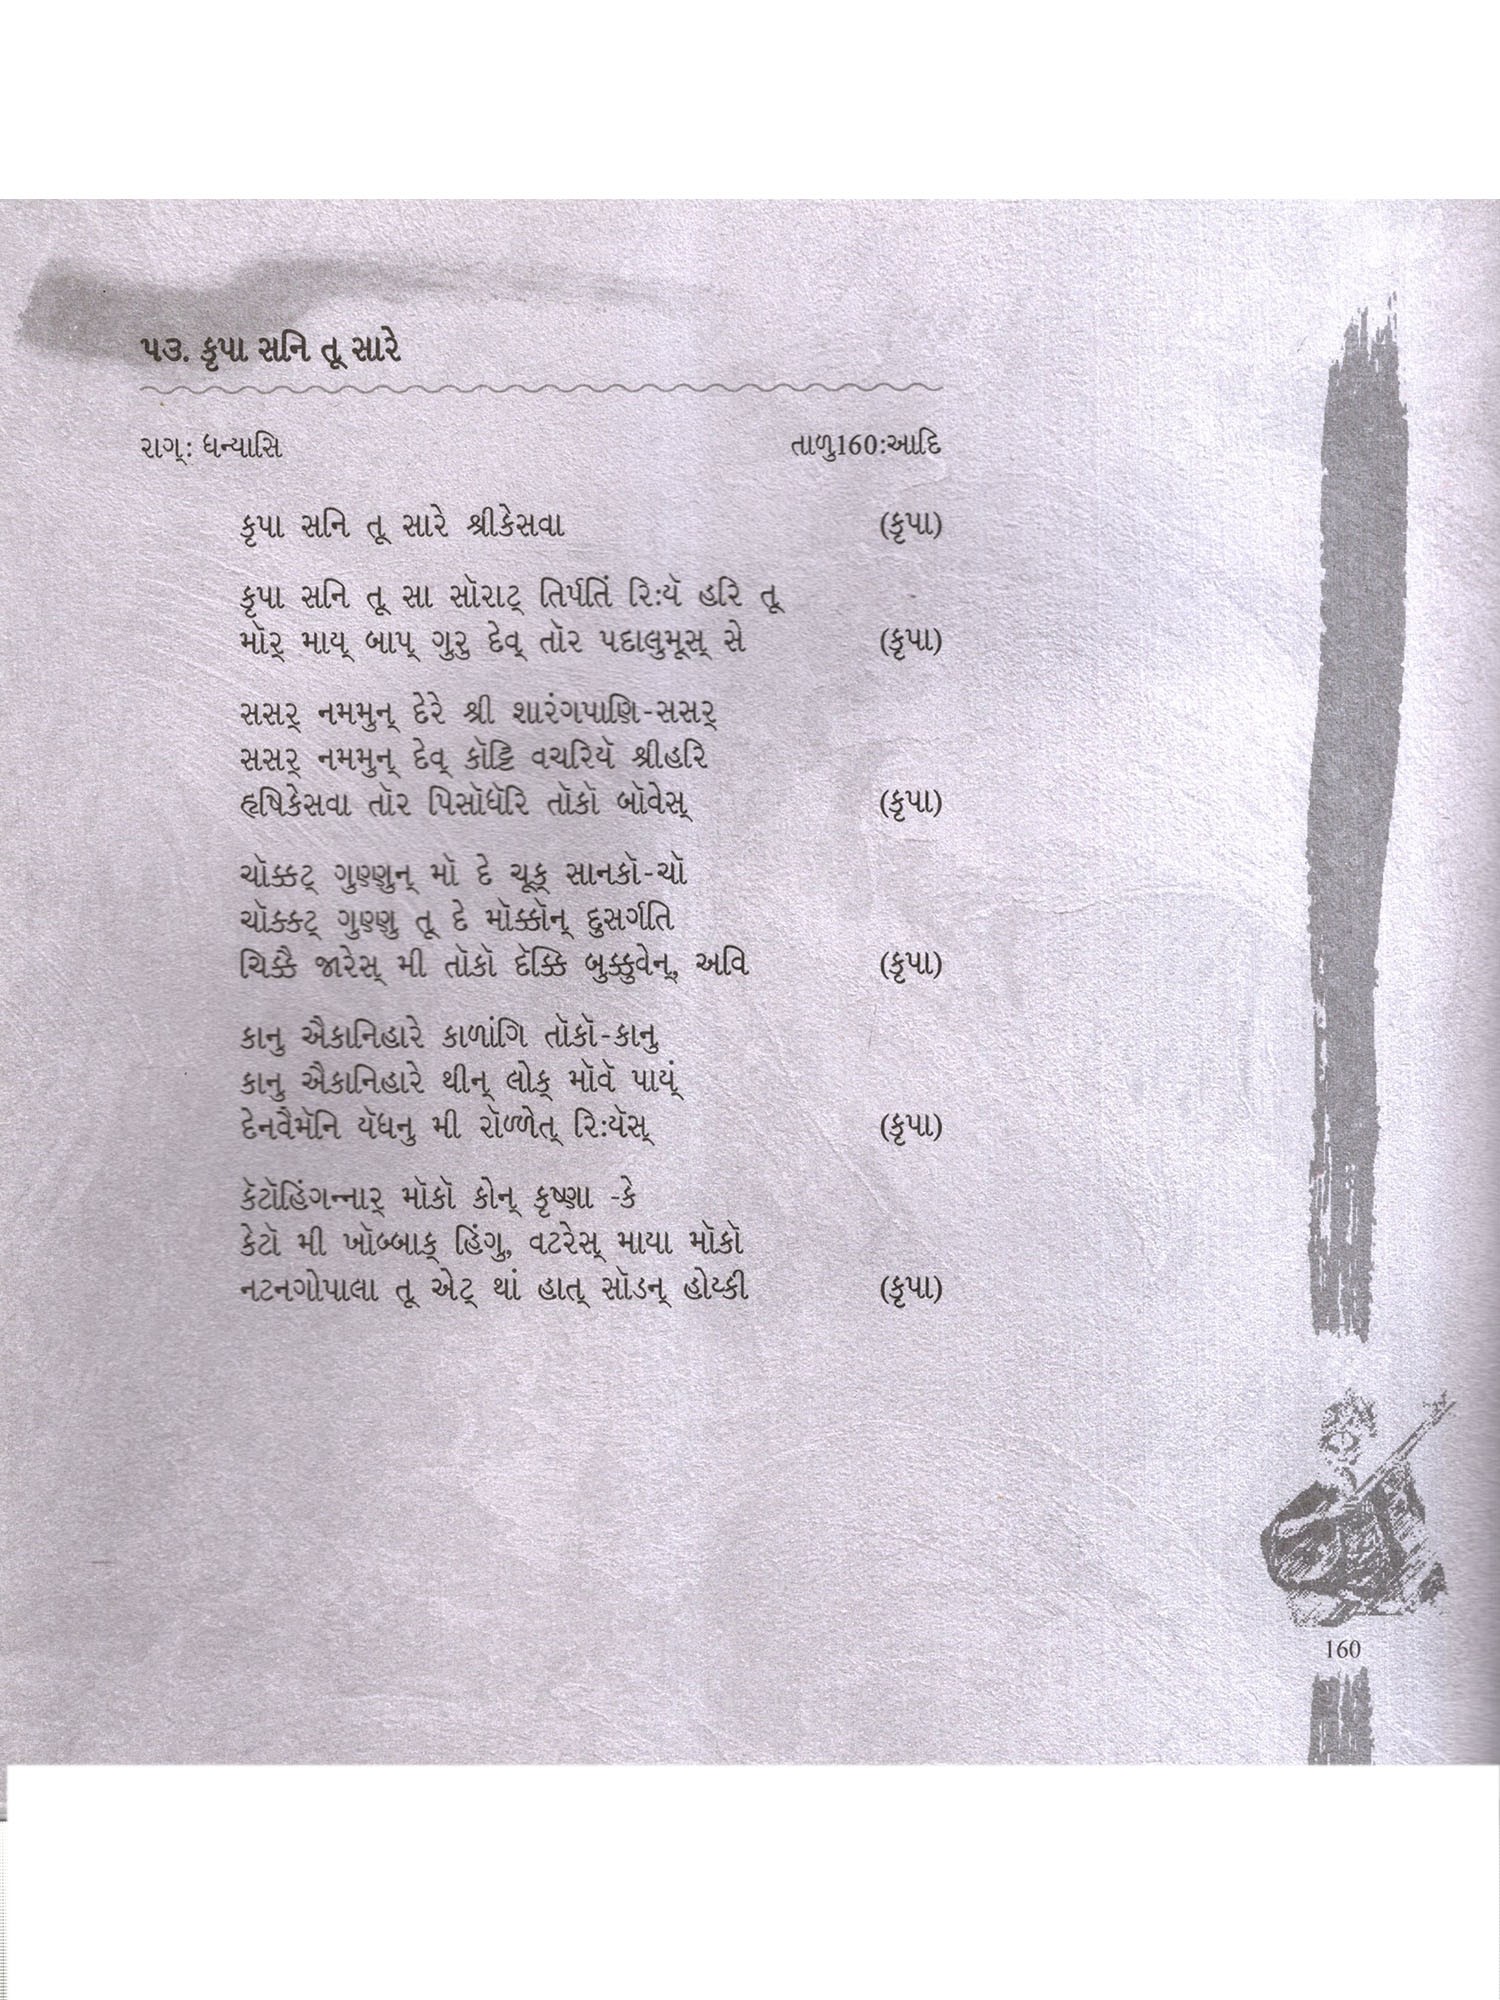 ૫૩. કૃપા સનિ તૂ સારે
રાગ્: ધન્યાસિ તાળુ160:આદિ
કૃપા સનિ તૂ સારે શ્રીકેસવા (કૃપા)
કૃપા સનિ તૂ સા સૉરાટ્ તિર્પતિં રિ:યૅ હરિ તૂ
મૉર્ માય્ બાપ્ ગુરુ દેવ્ તૉર પદાલુમૂસ્ સે (કૃપા)
સસર્ નમમુન્ દેરે શ્રી શારંગપાણિ-સસર્
સસર્ નમમુન્ દેવ્ કૉટ્ટિ વચરિયૅ શ્રીહરિ
હૃષિકેસવા તૉર પિસૉધૅરિ તૉકૉ બૉવેસ્ (કૃપા)
ચૉક્કટ્ ગુણ્ણુન્ મૉ દે ચૂક્ સાનકૉ-ચૉ
ચૉક્કટ્ ગુણ્ણુ તૂ દે મૉક્કૉન્ દુસર્ગતિ
ચિક્કૈ જારેસ્ મી તૉકૉ દૅક્કિ બુક્કુવેન્, અવિ (કૃપા)
કાનુ ઐકાનિહારે કાળાંગિ તૉકૉ-કાનુ
કાનુ ઐકાનિહારે થીન્ લોક્ મૉવૅ પાય્ં
દેનવૈમૅનિ યૅધનુ મી રૉળ્ળેત્ રિ:યૅસ્ (કૃપા)
કૅટૉહિંગન્નાર્ મૉકૉ કોન્ કૃષ્ણા -કે
કેટૉ મી ખૉબ્બાક્ હિંગુ, વટરેસ્ માયા મૉકૉ
નટનગોપાલા તૂ એટ્ થાં હાત્ સૉડન્ હોય્કી (કૃપા)
160